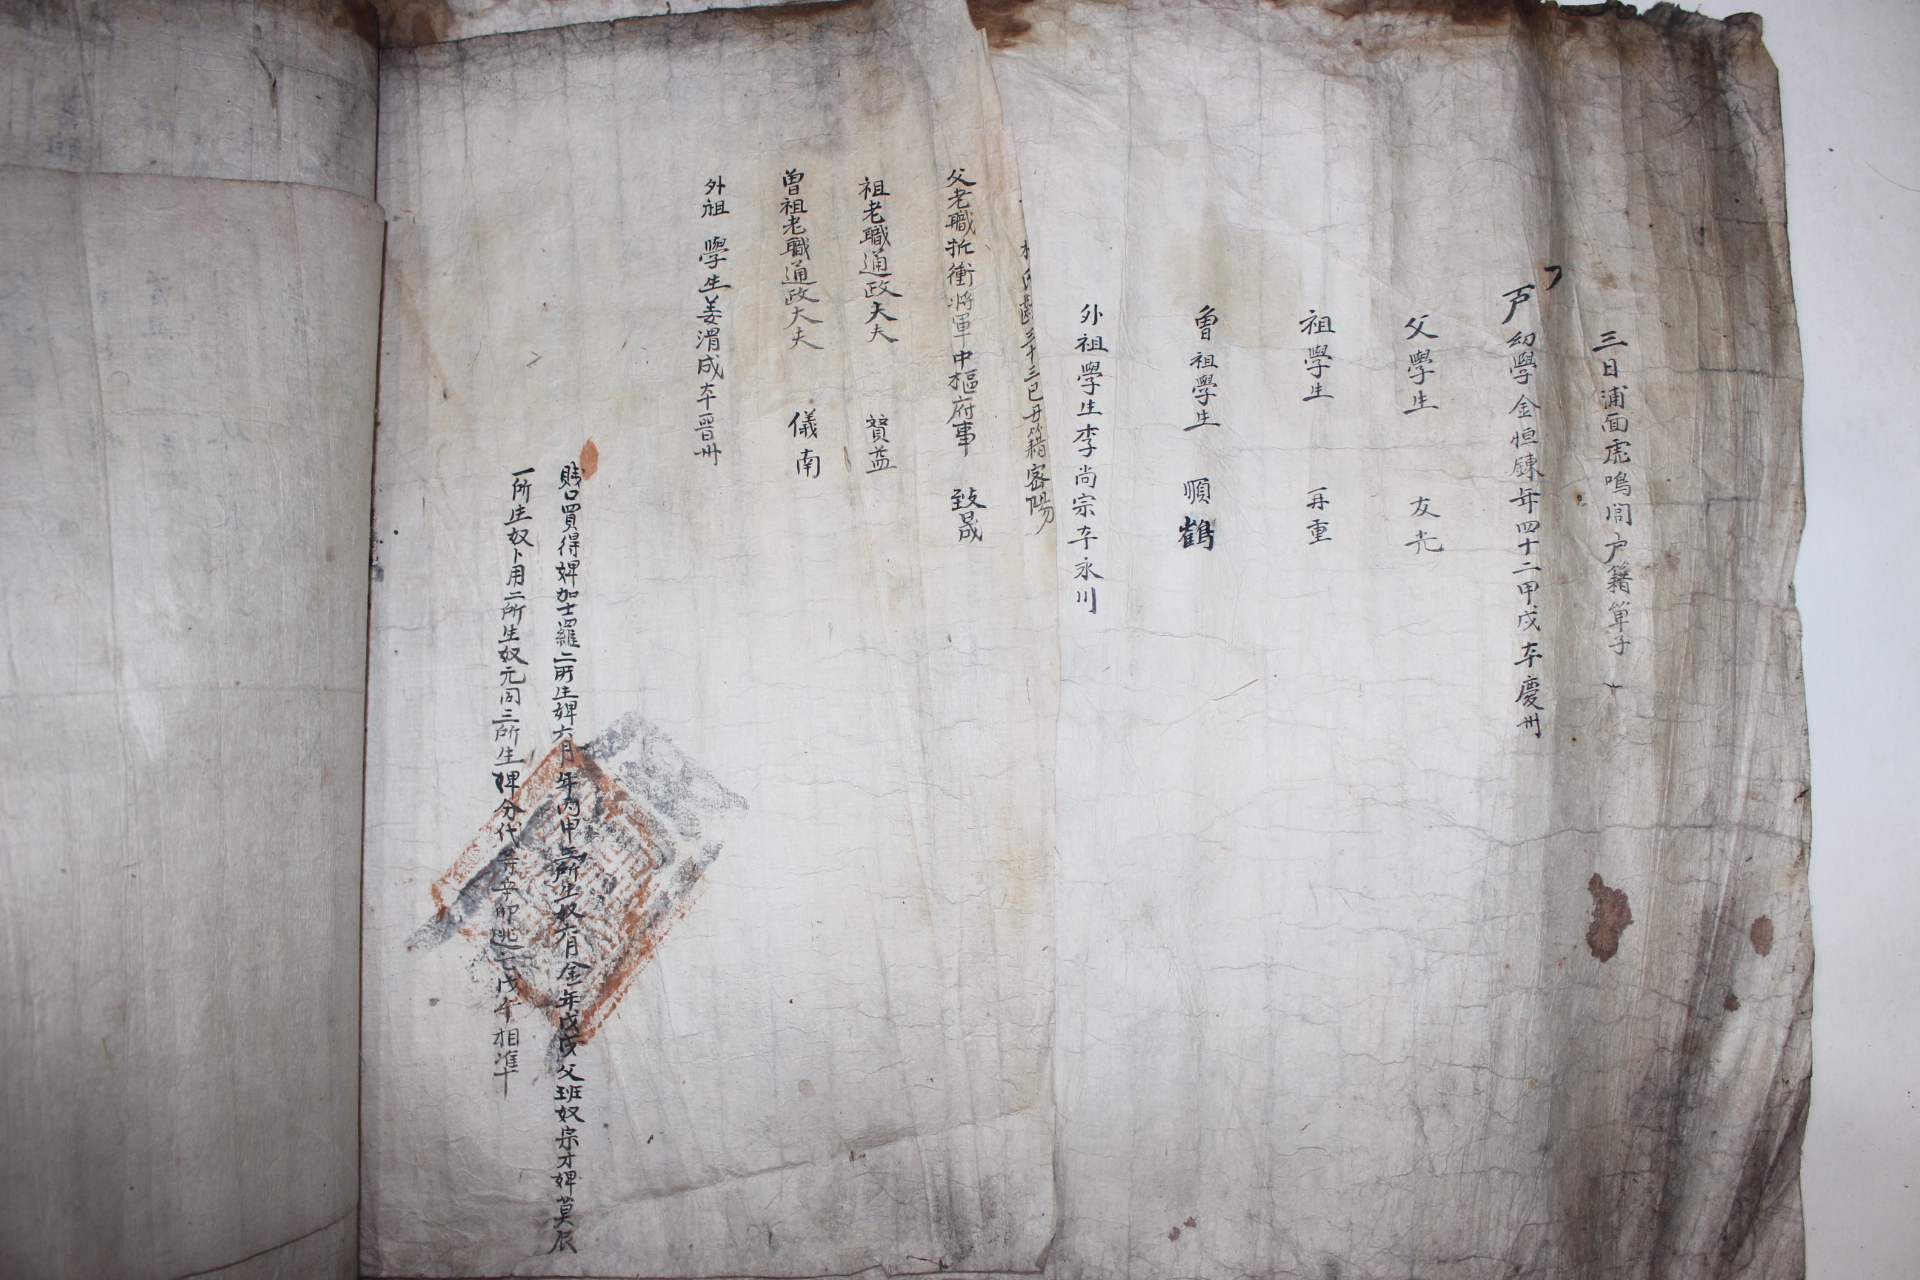 三日浦面虎鳴洞戶籍單子
戶幼學金恒鍊年四十二甲戌本慶州
父學生 友光
祖學生 再重
曾祖學生 順鶴
外祖學生李尚宗本永川
朴氏齡三十三己丑籍密陽
父老職折衝將軍中樞府事 致晟
祖老職通政大夫 贇益
曾祖老職通政大夫 儀南
外祖 學生姜渭成本晋州
賎口買得婢加士羅二所生婢六月年丙申三所生奴六月金年戊戌父班奴宗才婢莫辰
一所生奴卜用二所生奴元同三所生婢分代等辛卯逃亡戊午相準